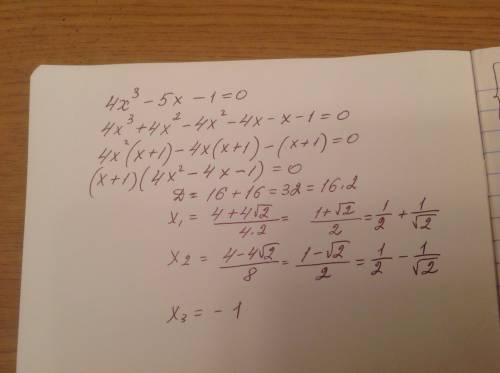 4x³ − 5x − 1 = 0
4x³ + 4x² − 4x² − 4x − x − 1 = 0
4x²(x+1) − 4x(x+1) − (x+1) = 0
(x+1)(4x² − 4x − 1) = 0
D = 16 + 16 = 32 = 16·2
x₁ = (4+4√2)/(4·2) = (1+√2)/2 = 1/2 + 1/√2
x₂ = (4−4√2)/8 = (1−√2)/2 = 1/2 − 1/√2
x₃ = − 1